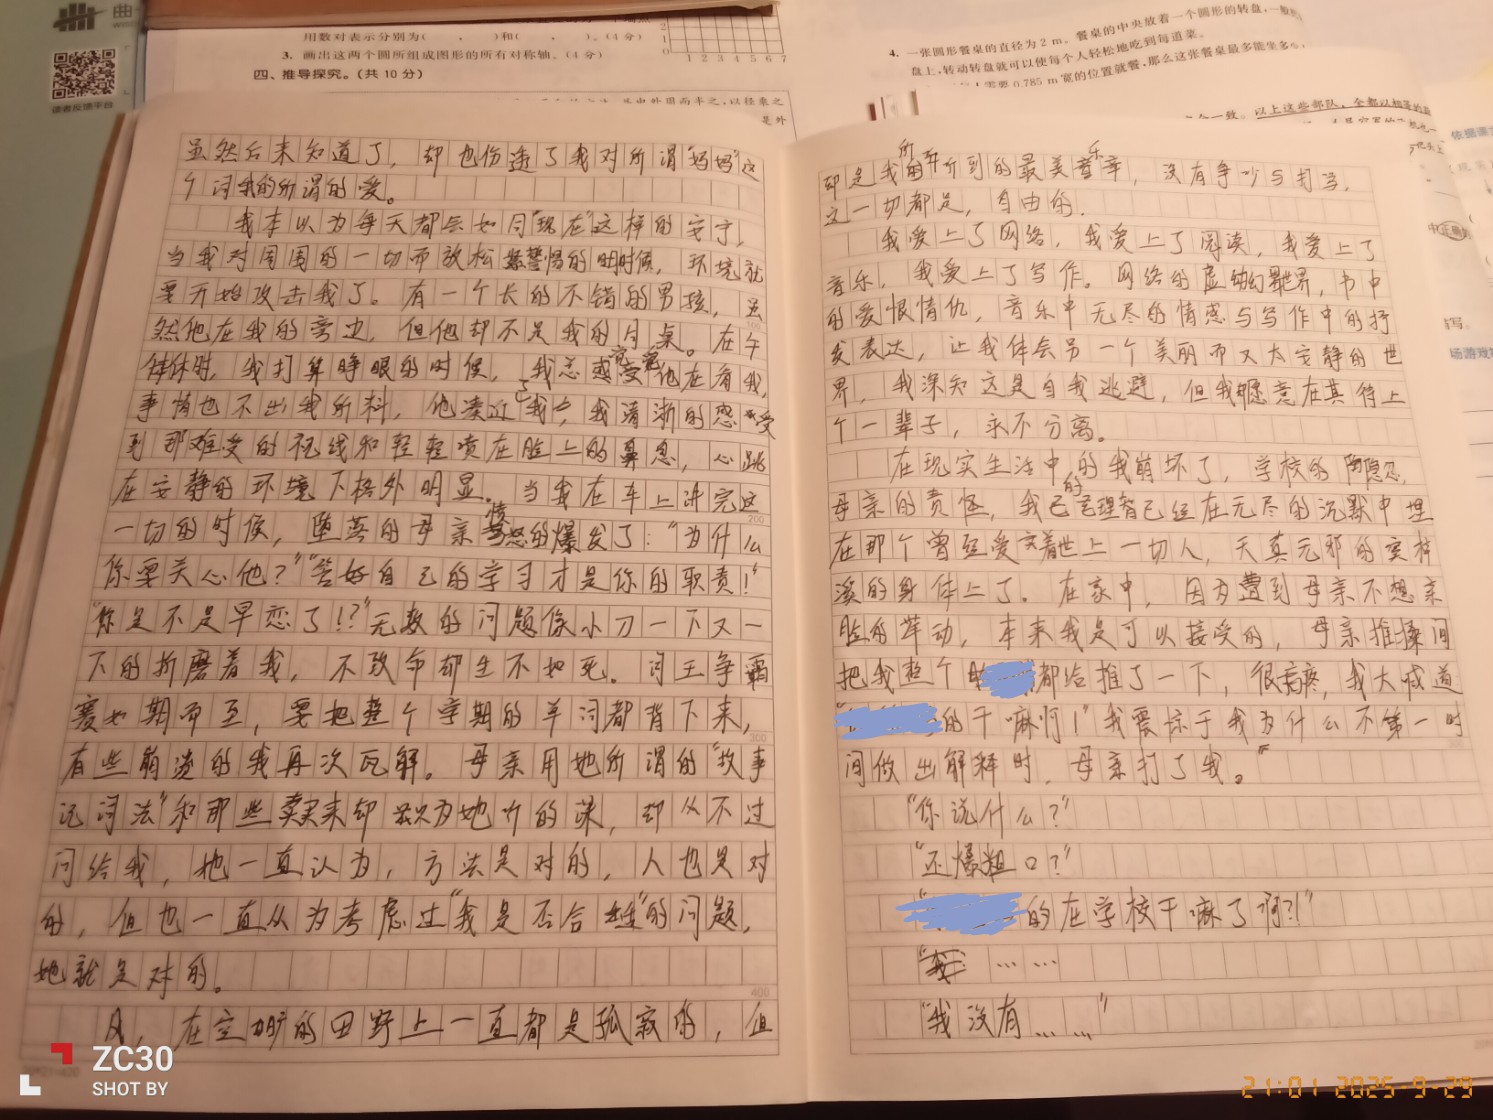 用数对表示分别为( , )和( , )。(4分)
3. 画出这两个圆所组成图形的所有对称轴。(4分)
四、推导探究。(共10分)
2
1
0
1 2 3 4 5 6 7
读者反馈平台
4. 一张圆形餐桌的直径为2 m。餐桌的中央放着一个圆形的转盘,一般
盘上,转动转盘就可以使每个人轻松地吃到每道菜。
需要0.785 m宽的位置就餐,那么这张餐桌最多能坐多
以上这些部队,全都以相等的
虽然后来知道了,却也伤透了我对所谓“妈妈”这
个词我的所谓的爱。
我本以为每天都会如同“现在”这样的安宁,
当我对周围的一切而放松警惕的时候,环境就
要开始攻击我了。有一个长的不错的男孩,虽
然他在我的旁边,但他却不是我的同桌。在午
休时,我打算睁眼的时候,我总感觉他在看我,
事情也不出我所料,他凑近了我,我清淅的感受
到那难受的视线和轻轻喷在脸上的鼻息,心跳
在安静的环境下格外明显。当我在车上讲完这
一切的时候,堕落的母亲愤怒的爆发了:“为什么
你要关心他?”“答好自己的学习才是你的职责!”
“你是不是早恋了!?”无数的问题像小刀一下又一
下的折磨着我,不致命却生不如死。词王争霸
赛如期而至,要把整个学期的单词都背下来,
有些崩溃的我再次瓦解。母亲用她所谓的“故事
记词法”和那些买来却只为她听的课,却从不过
问给我,她一直认为,方法是对的,人也是对
的,但也一直从为考虑过“我是否合适”的问题,
她就是对的。
风,在空旷的田野上一直都是孤寂的,但
却是我所听到的最美音乐,没有争吵与打骂,
这一切都是,自由的.
我爱上了网络,我爱上了阅读,我爱上了
音乐,我爱上了写作。网络的虚幻世界,书中
的爱恨情仇,音乐中无尽的情感与写作中的抒
发表达,让我体会另一个美丽而又太安静的世
界,我深知这是自我逃避,但我愿意在其待上
个一辈子,永不分离。
在现实生活中的我崩坏了,学校的隐忍,
母亲的责怪,我的理智已经在无尽的沉默中埋
在那个曾经爱着世上一切人,天真无邪的
溪的身体上了。在家中,因为遭到母亲不想亲
脸的举动,本来我是可以接受的,母亲推搡间
把我整个 都给推了一下,很疼,我大喊道
的干嘛啊!”我震惊于我为什么不第一时
间做出解释时,母亲打了我。
“你说什么?”
“还爆粗口?”
“ 的在学校干嘛了啊?!”
“我……
“我没有……”
100
200
300
400
ZC30
SHOT BY
21:01 2025-9-29